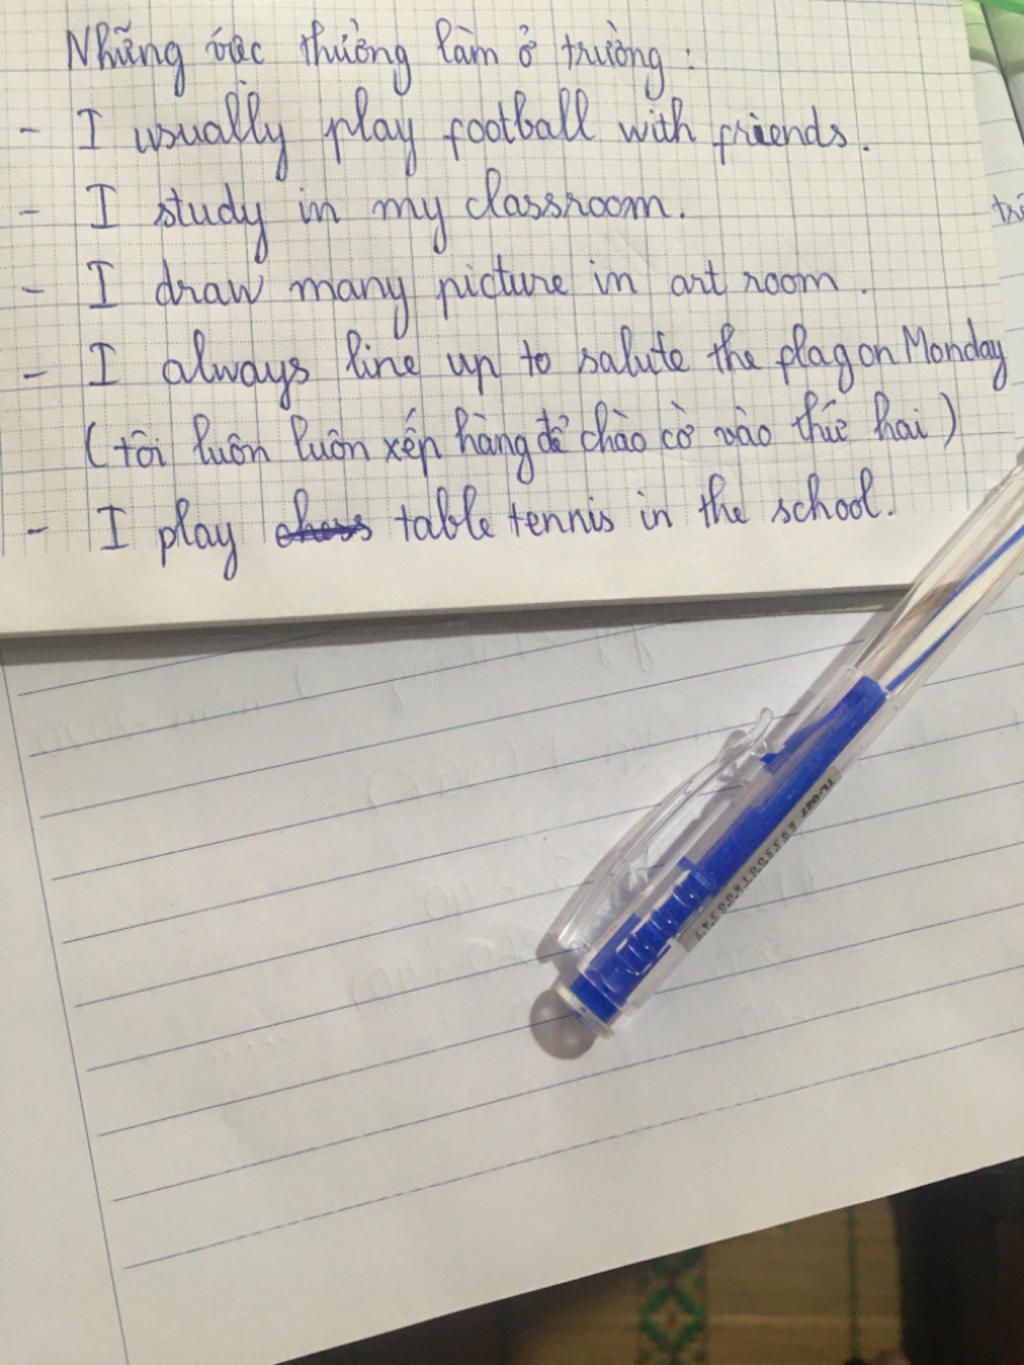 Những việc thường làm ở trường :
- I usually play football with friends.
- I study in my classroom.
- I draw many picture in art room .
- I always line up to salute the plag on Monday
(tôi luôn luôn xếp hàng để chào cờ vào thứ hai)
- I play chess table tennis in the school.
TL-027